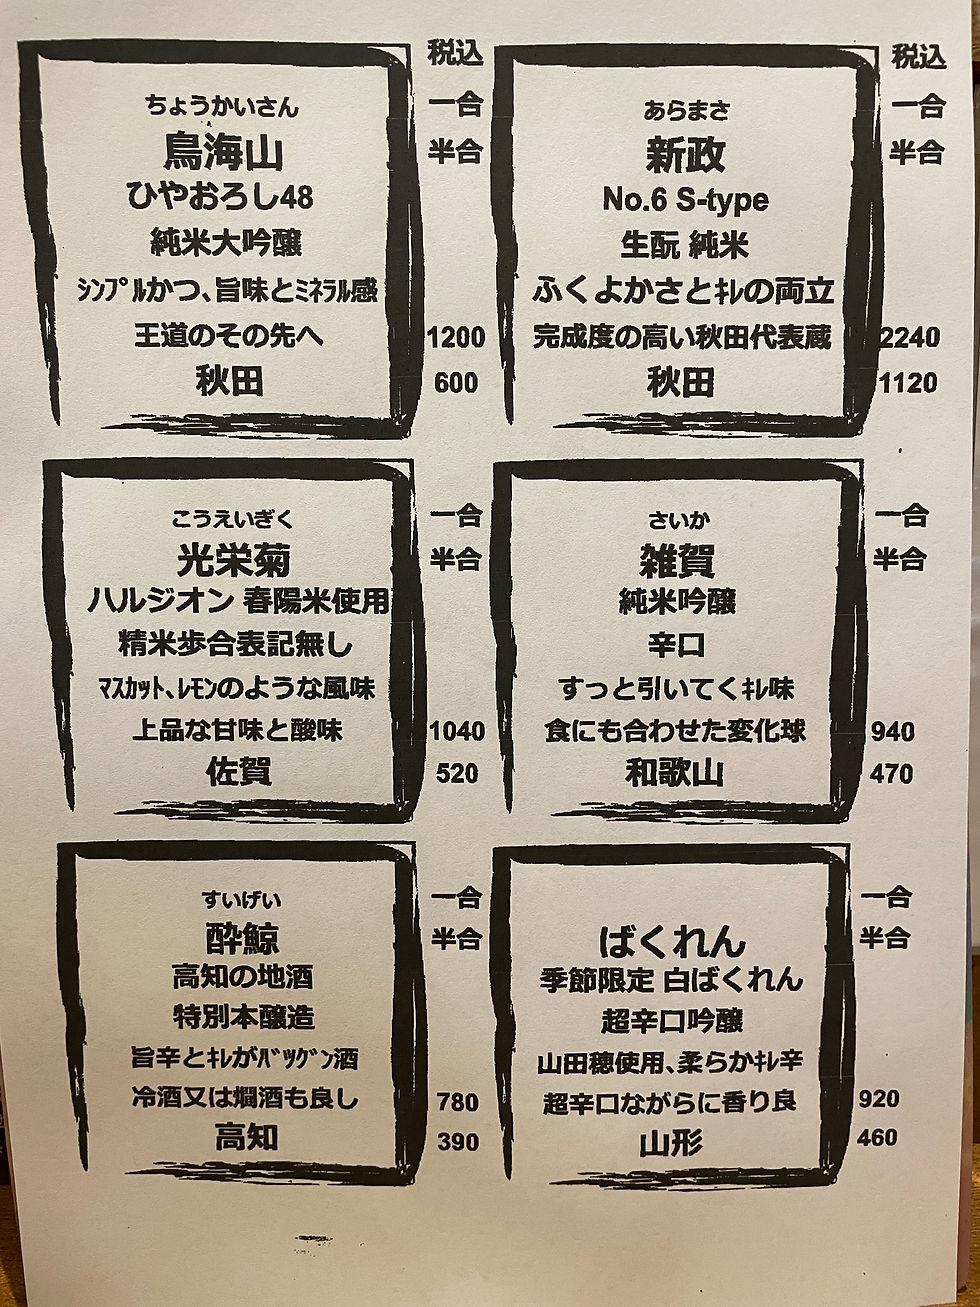 税込
ちょうかいさん
一合
鳥海山
半合
ひやおろし48
純米大吟醸
ｼﾝﾌﾟﾙかつ、旨味とﾐﾈﾗﾙ感
王道のその先へ
1200
秋田
600
税込
あらまさ
一合
新政
半合
No.6 S-type
生酛 純米
ふくよかさとｷﾚの両立
完成度の高い秋田代表蔵
2240
秋田
1120
こうえいぎく
一合
光栄菊
半合
ハルジオン 春陽米使用
精米歩合表記無し
ﾏｽｶｯﾄ、ﾚﾓﾝのような風味
上品な甘味と酸味
1040
佐賀
520
さいか
一合
雑賀
半合
純米吟醸
辛口
すっと引いてくｷﾚ味
食にも合わせた変化球
940
和歌山
470
すいげい
一合
酔鯨
半合
高知の地酒
特別本醸造
旨辛とｷﾚがﾊﾞﾂｸﾞﾝ酒
冷酒又は燗酒も良し
780
高知
390
一合
ばくれん
半合
季節限定 白ばくれん
超辛口吟醸
山田穂使用、柔らかｷﾚ辛
超辛口ながらに香り良
920
山形
460